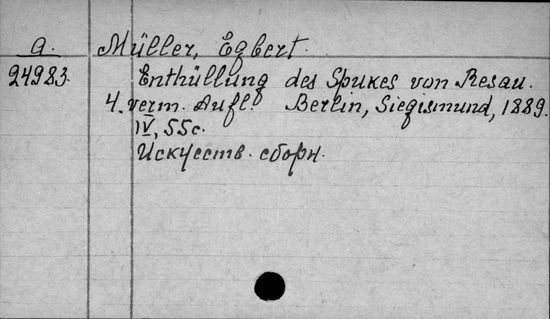 a. Müller, Egbert.
24983. Enthüllung des Spukes von Resau.
4. verm. Aufl. Berlin, Siegismund, 1889.
IV, 55 с.
Искусств. сборн.